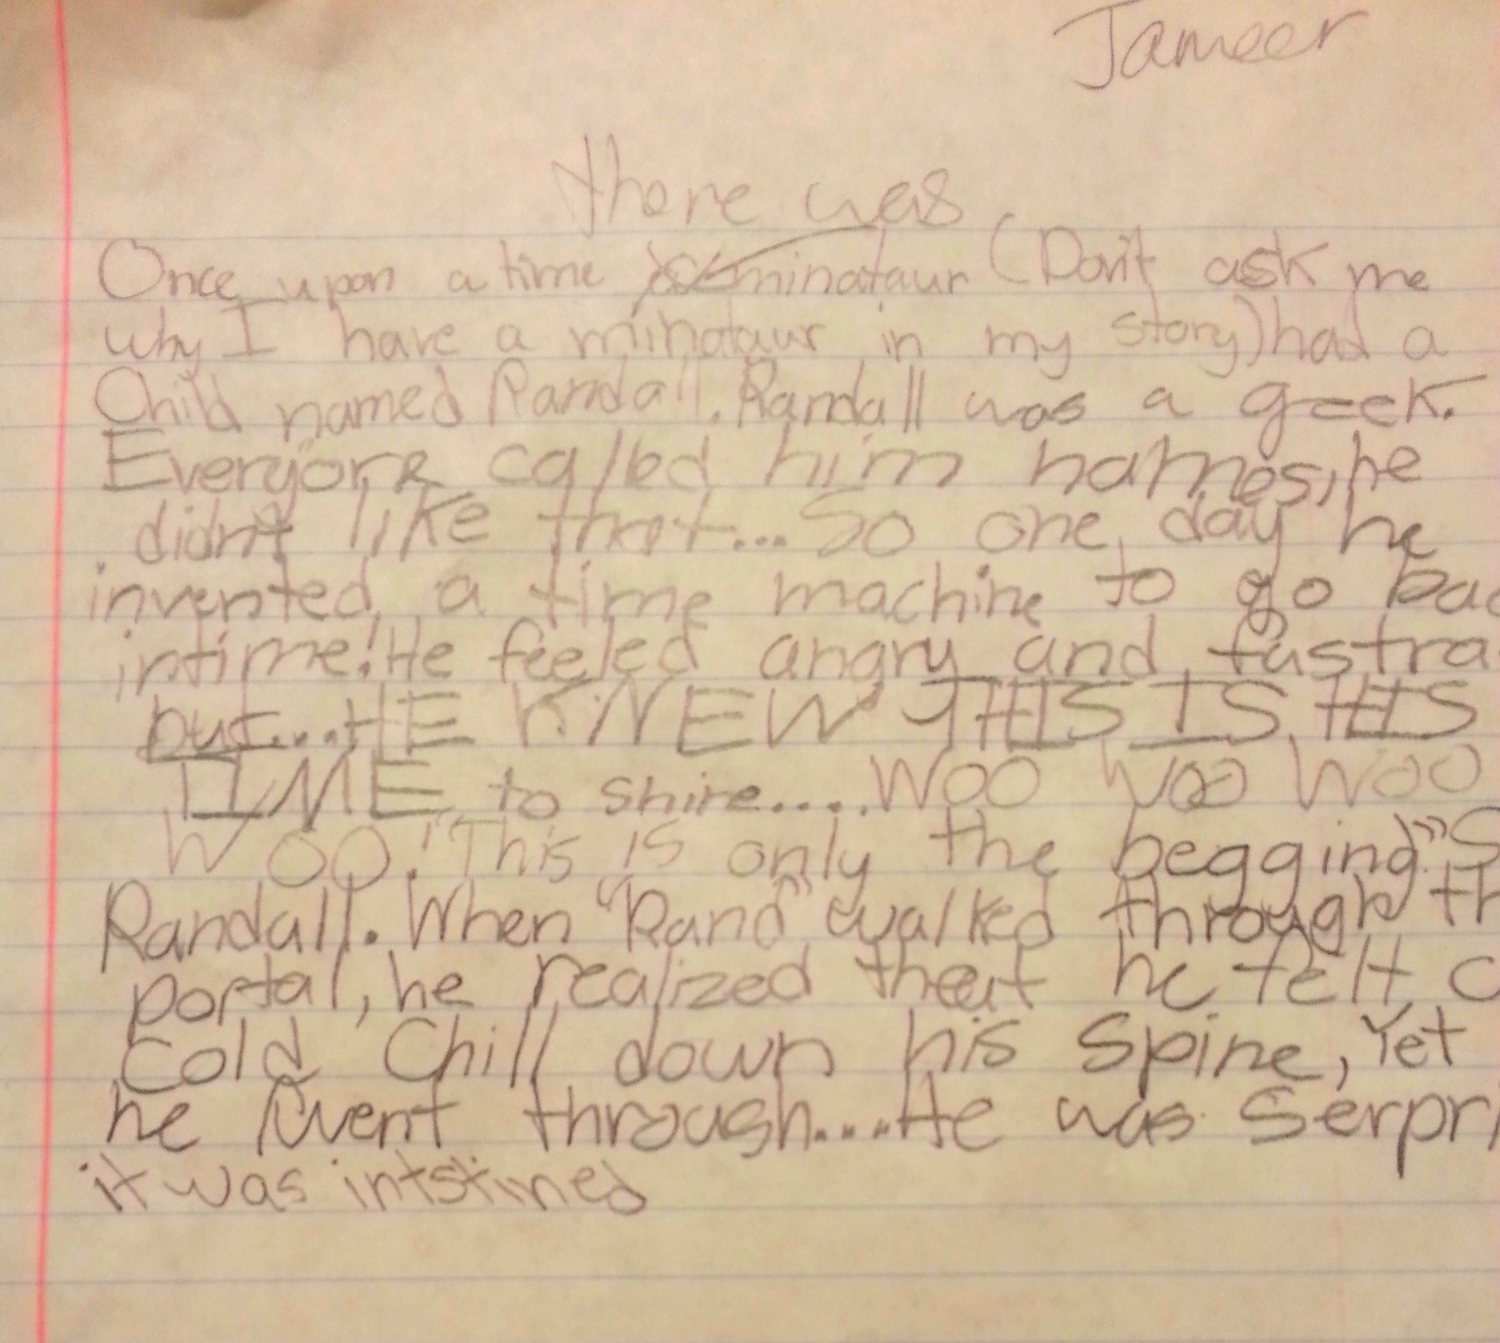 Jameer
there was
Once upon a time minataur (Don't ask me
why I have a minotaur in my story) had a
Child named Randall. Randall was a geek.
Everyone called him names, he
didn't like that... So one day he
invented a time machine to go bac
intime! He feeled angry and fustra
but... HE KNEW THIS IS HIS
TIME to shine.... WOO WOO WOO
WOO! "This is only the begging" S
Randall. When "Rand" walked through th
portal, he realized that he felt
Cold Chill down his Spine, Yet
he went through... He was Serpri
it was intstined